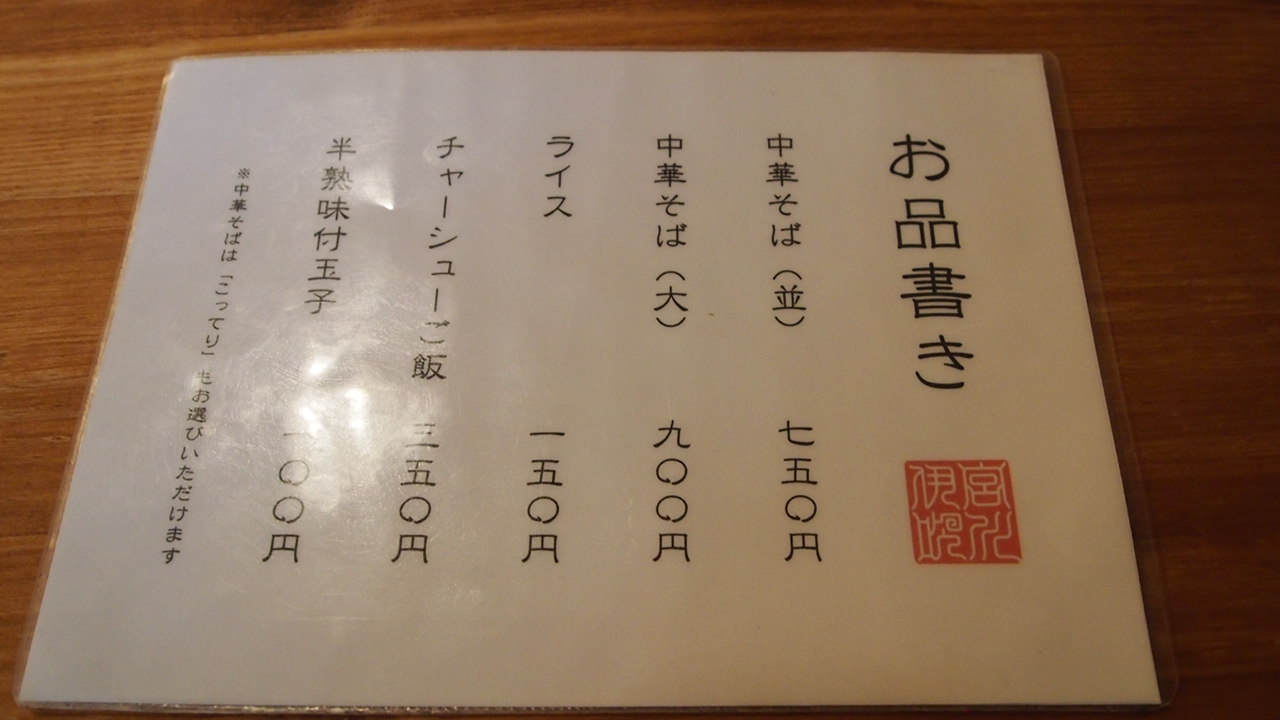 お品書き
中華そば（並） 七五〇円
中華そば（大） 九〇〇円
ライス 一五〇円
チャーシューご飯 三五〇円
半熟味付玉子 一〇〇円
※中華そばは「こってり」もお選びいただけます